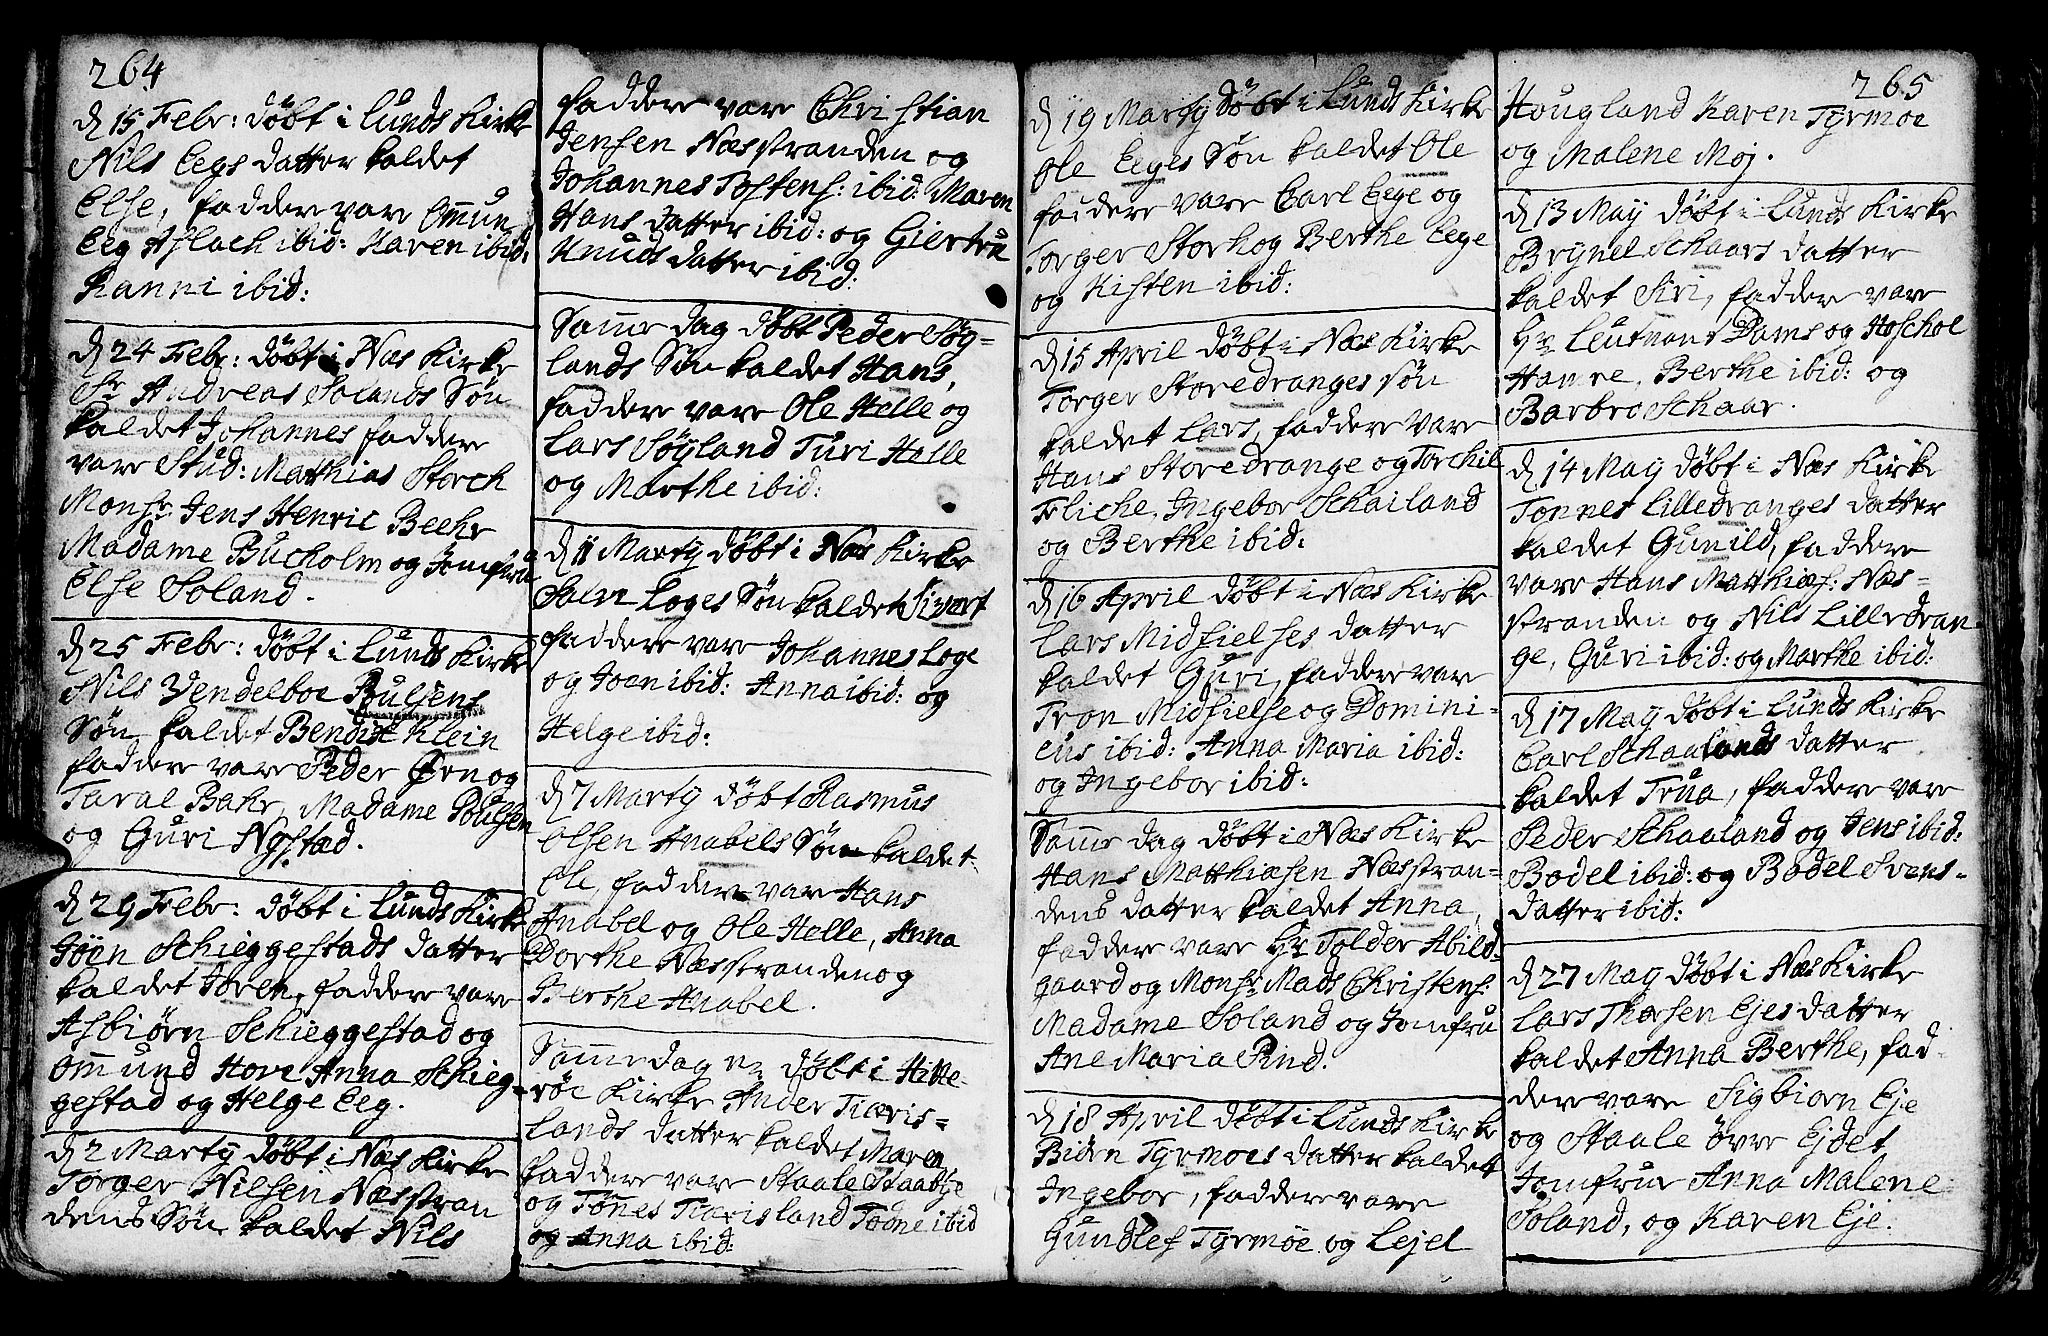 264
d 15 Febr: døbt i Lunds Kirke
Nils Eegs datter kaldet
Else, faddere vare Omun
Eeg Aslach ibid: Karen ibid:
Ranni ibid:
d 24 Febr: døbt i Næs Kirke
Sr Andreas Solands Søn
kaldet Johannes faddere
vare Stud: Matthias Storch
Monsr Jens Henric Beehr
Madame Bucholm og Jomfru
Else Soland.
d 25 Febr: døbt i Lunds Kirke
Nils Vendelboe Pulsens
Søn kaldet Bendix Klein
faddere vare Peder Ørn og
Taral Bahr, Madame Poulsen
og Guri Nystad.
d 29 Febr: døbt i Lunds Kirke
Joen Schieggestads datter
kaldet Joren, faddere vare
Asbiørn Schieggestad og
Ommund Hove Anna Schieg-
gestad og Helge Eeg.
d 2 Marty døbt i Næs Kirke
Torger Nilsen Næsstran
dens Søn kaldet Nils
faddere vare Christian
Jensen Næsstranden og
Johannes Tostens: ibid: Maren
Hans datter ibid: og Giertru
Knuds datter ibid:
Samme dag døbt Peder Søy-
lands Søn kaldet Hans,
faddere vare Ole Helle og
Lars Søyland Turi Helle
og Marthe ibid:
d 11 Marty døbt i Næs Kirke
Loges Søn kaldet Sivert
faddere vare Johannes Loge
og Joen ibid: Anna ibid: og
Helge ibid:
d 7 Marty døbt Rasmus
Olsen Anabels Søn kaldet
Ole, faddere vare Hans
Anabel og Ole Helle, Anna
Dorthe Næsstranden og
Berthe Anabel.
Samme dag døbt i Hitte-
røe Kirke Ander Tiæris-
lands datter kaldet Maren
faddere vare Staale Staabye
og Tønes Tiærisland Todne ibid
og Anna ibid:
d 19 Marty døbt i Lunds Kirke
Ole Eeges Søn kaldet Ole
faddere vare Carl Eege og
Torger Storhog Berthe Eege
og Kisten ibid:
d 15 April døbt i Næs Kirke
Torger Storedranges søn
kaldet Lars, faddere vare
Hans Storedrange og Torchil
Fliche, Ingebor Schailand
og Berthe ibid:
d 16 April døbt i Næs Kirke
Lars Midsielses datter
kaldet Guri, faddere vare
Tron Midsielse og Domini-
cus ibid: Anna Maria ibid:
og Ingebor ibid:
Samme dag døbt i Næs Kirke
Hans Matthiæsen Næsstran-
dens datter kaldet Anna,
faddere vare Hr Tolder Abild-
gaard og Monsr Mads Christens:
Madame Soland og Jomfru
Ane Maria Pind.
d 18 April døbt i Lunds Kirke
Biørn Tyrmoes datter kaldet
Ingebor, faddere vare
Gundlef Tyrmøe og Lejel
265
Hougland Karen Tyrmoe
og Malene Moj.
d 13 May døbt i Lunds Kirke
Brynel Schaars datter
kaldet Siri, faddere vare
Hr Leutnant Dams og Hoschol
Hamre, Berthe ibid: og
Barbro Schaar.
d 14 May døbt i Næs Kirke
Tonnes Lilledranges datter
kaldet Gunild, faddere
vare Hans Matthiæs: Næs-
stranden og Nils Lilledran
ge, Guri ibid: og Marthe ibid:
d 17 May døbt i Lunds Kirke
Carl Schaalands datter
kaldet Trua, faddere vare
Peder Schaaland og Jens ibid:
Bodel ibid: og Bodel Svens-
datter ibid:
d 27 May døbt i Næs Kirke
Lars Thorsen Ejes datter
kaldet Anna Berthe, fad-
dere vare Sigbiorn Eje
og Staale øvre Ejdet
Jomfrue Anna Malene
Soland, og Karen Eje.